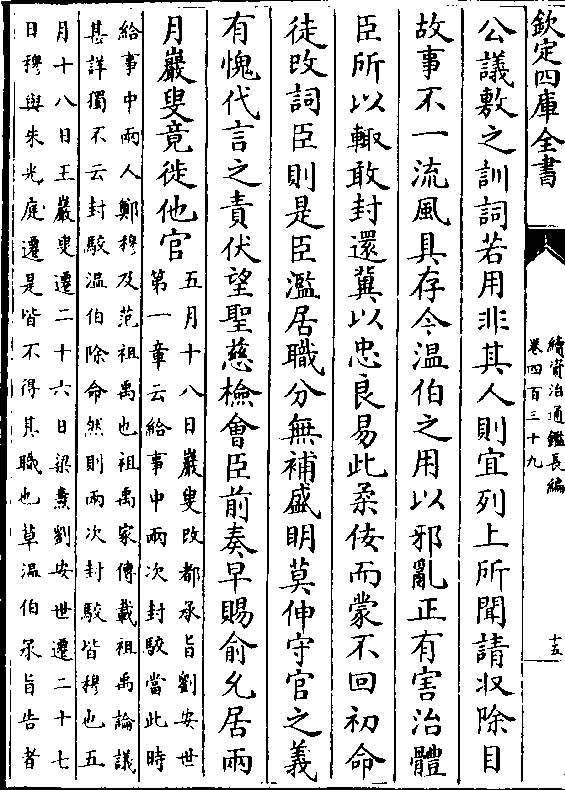 欽定四庫全書
續資治通鑑長編
卷四百三十九
十五
公議敷之訓詞若用非其人則宜列上所聞請收除目
故事不一流風具存今溫伯之用以邪亂正有害治體
臣所以輙敢封還冀以忠良易此柔佞而蒙不回初命
徒改詞臣則是臣濫居職分無補盛明莫伸守官之義
有愧代言之責伏望聖慈檢會臣前奏早賜俞允居兩
月巖叟竟徙他官
五月十八日巖叟改都承旨劉安世
第一章云給事中兩次封駮當此時
給事中兩人鄭穆及范祖禹也祖禹家傳載祖禹論議
甚詳獨不云封駮溫伯除命然則兩次封駮皆穆也五
月十八日王巖叟遷二十六日梁燾劉安世遷二十七
日穆與朱光庭遷是皆不得其職也草溫伯承旨告者